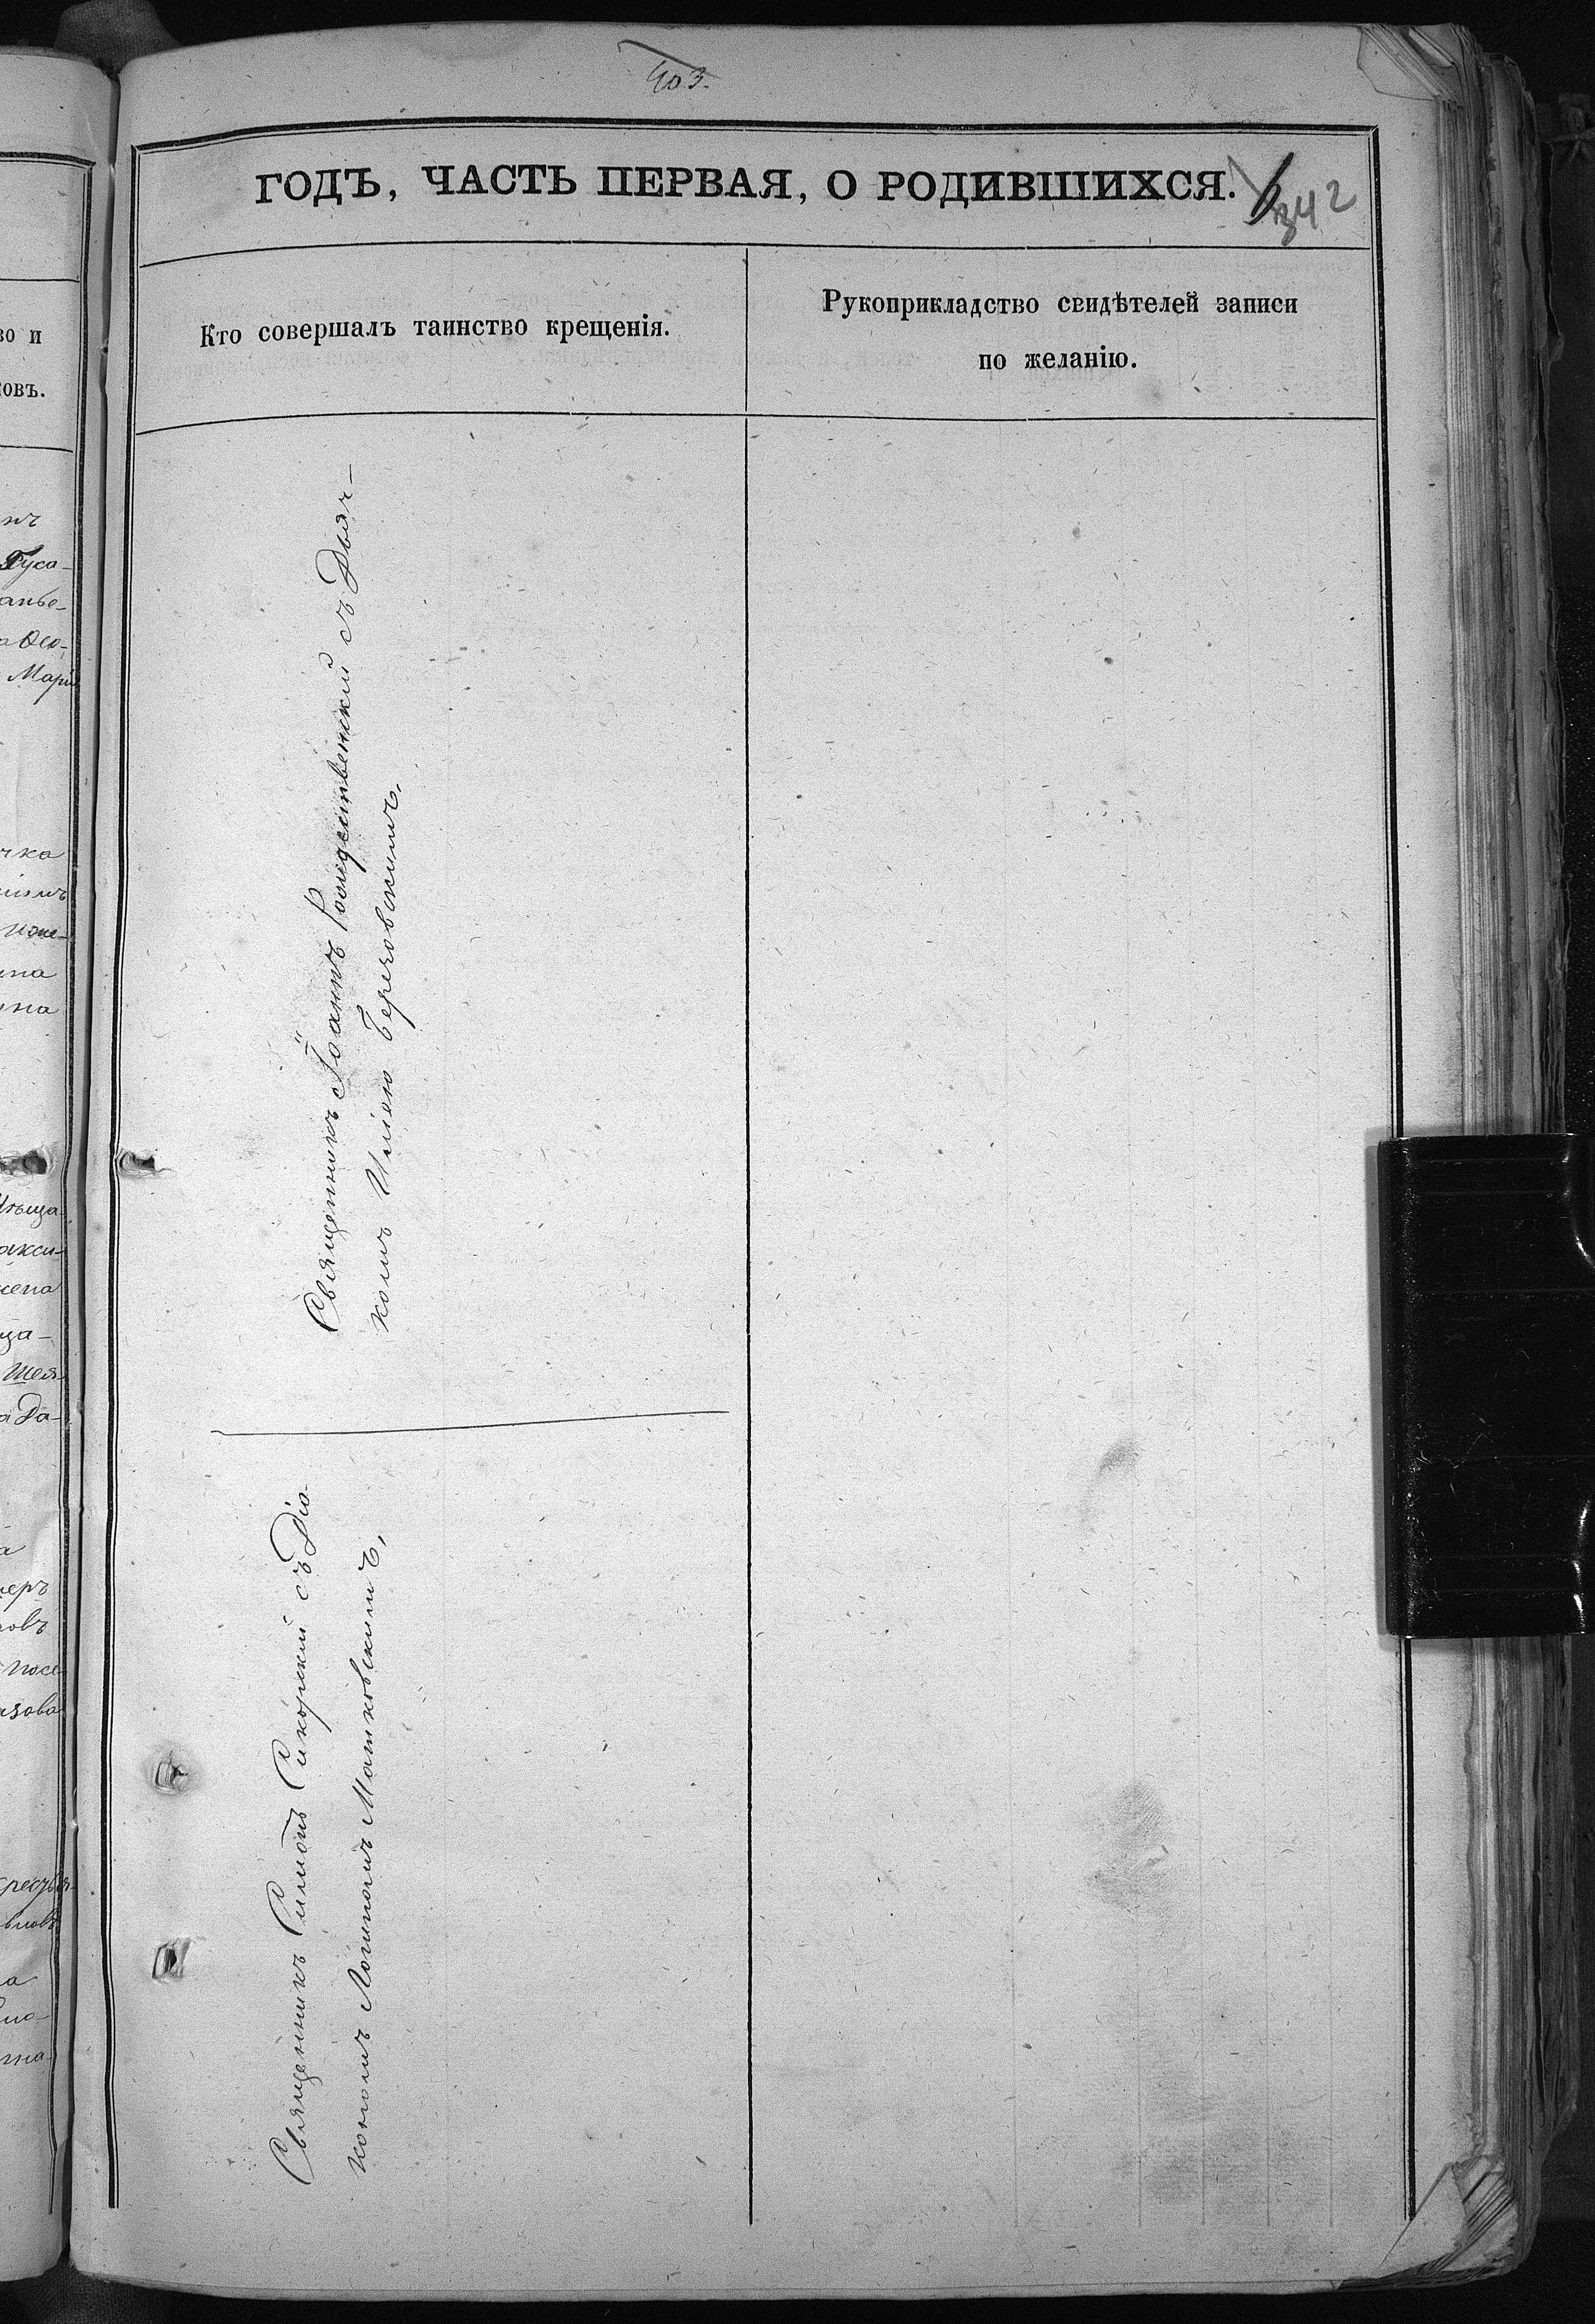 403.
ГОДЪ, ЧАСТЬ ПЕРВАЯ, О РОДИВШИХСЯ.
342
Кто совершалъ таинство крещенія.
Рукоприкладство свидѣтелей записи
по желанію.
Священникъ Іоаннъ Рождественскій съ Дьяч-
комъ Иліею Березовскимъ,
Священникъ Симонъ Сикорскій съ Діа-
кономъ Логиномъ Мошковскимъ,
во и
ковъ.
Гуса-
Марія
чка
акси-
жена
ща-
а Да-
перъ
повъ